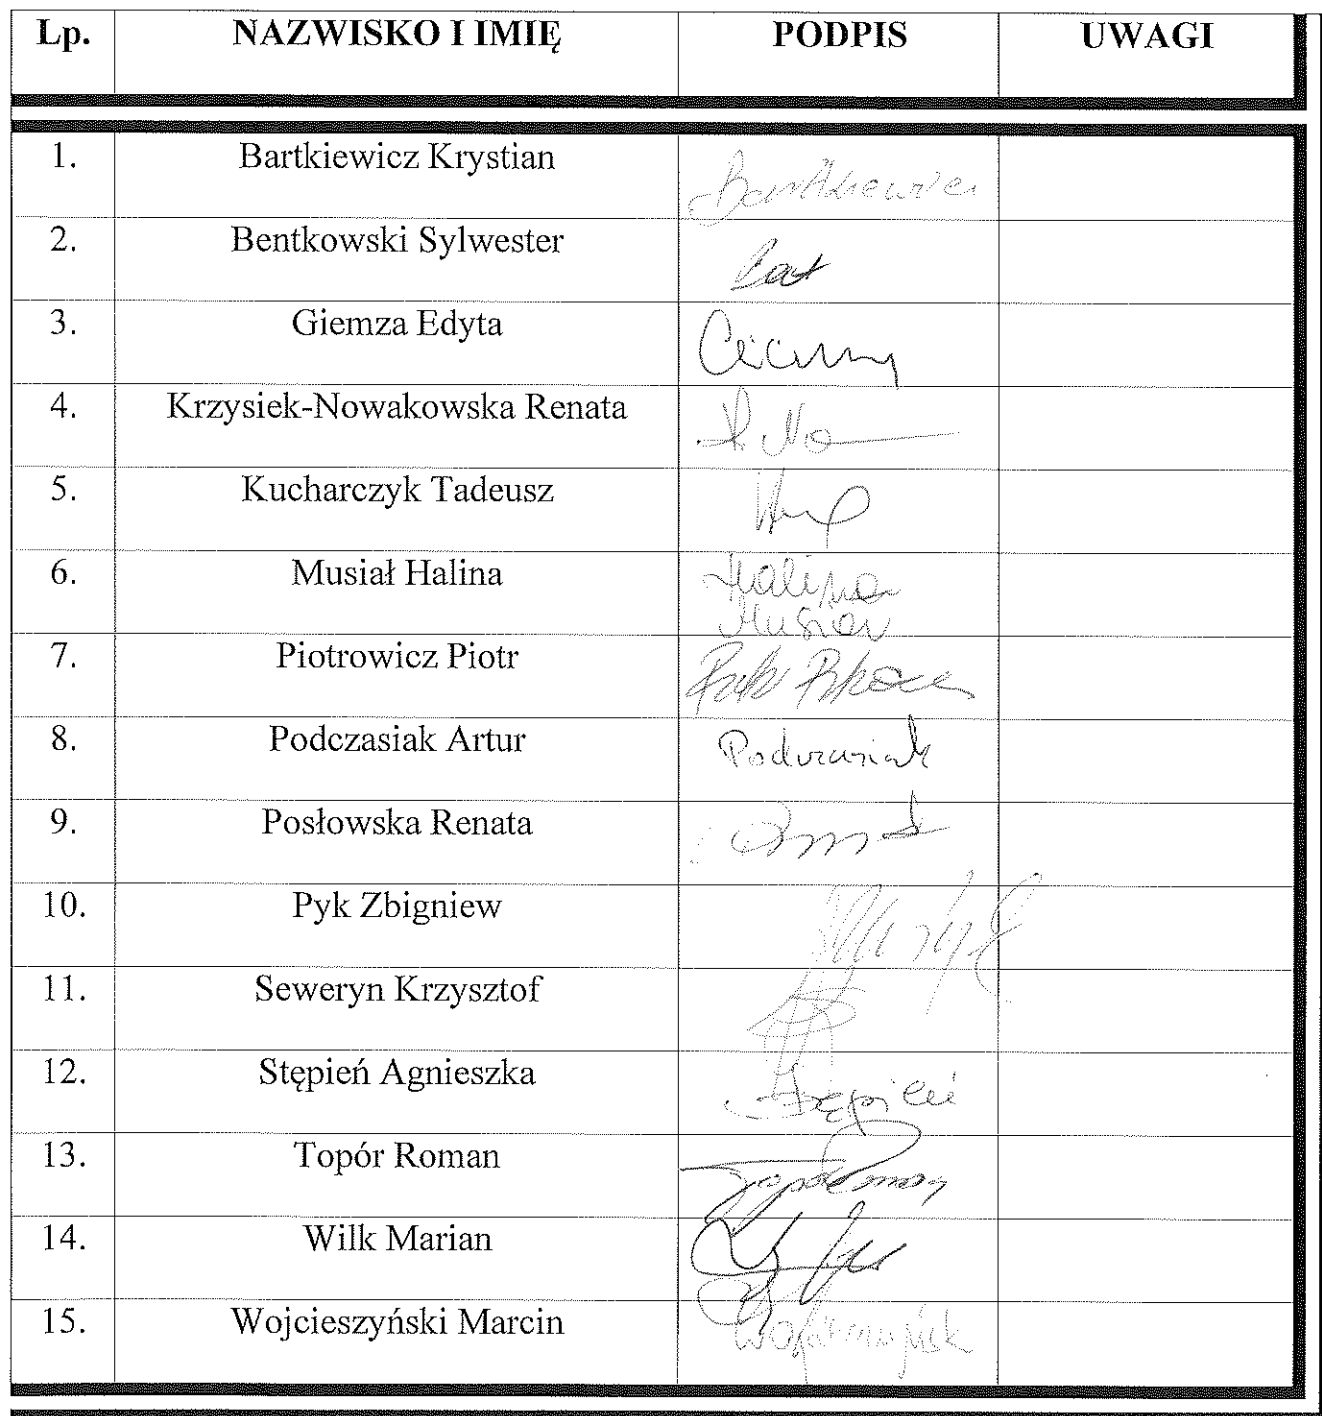 Lp. NAZWISKO I IMIĘ PODPIS UWAGI
1. Bartkiewicz Krystian
2. Bentkowski Sylwester
3. Giemza Edyta
4. Krzysiek-Nowakowska Renata
5. Kucharczyk Tadeusz
6. Musiał Halina Halina
Musiał
7. Piotrowicz Piotr
8. Podczasiak Artur Podczasiak
9. Posłowska Renata
10. Pyk Zbigniew
11. Seweryn Krzysztof
12. Stępień Agnieszka Stępień
13. Topór Roman Topór Roman
14. Wilk Marian
15. Wojcieszyński Marcin